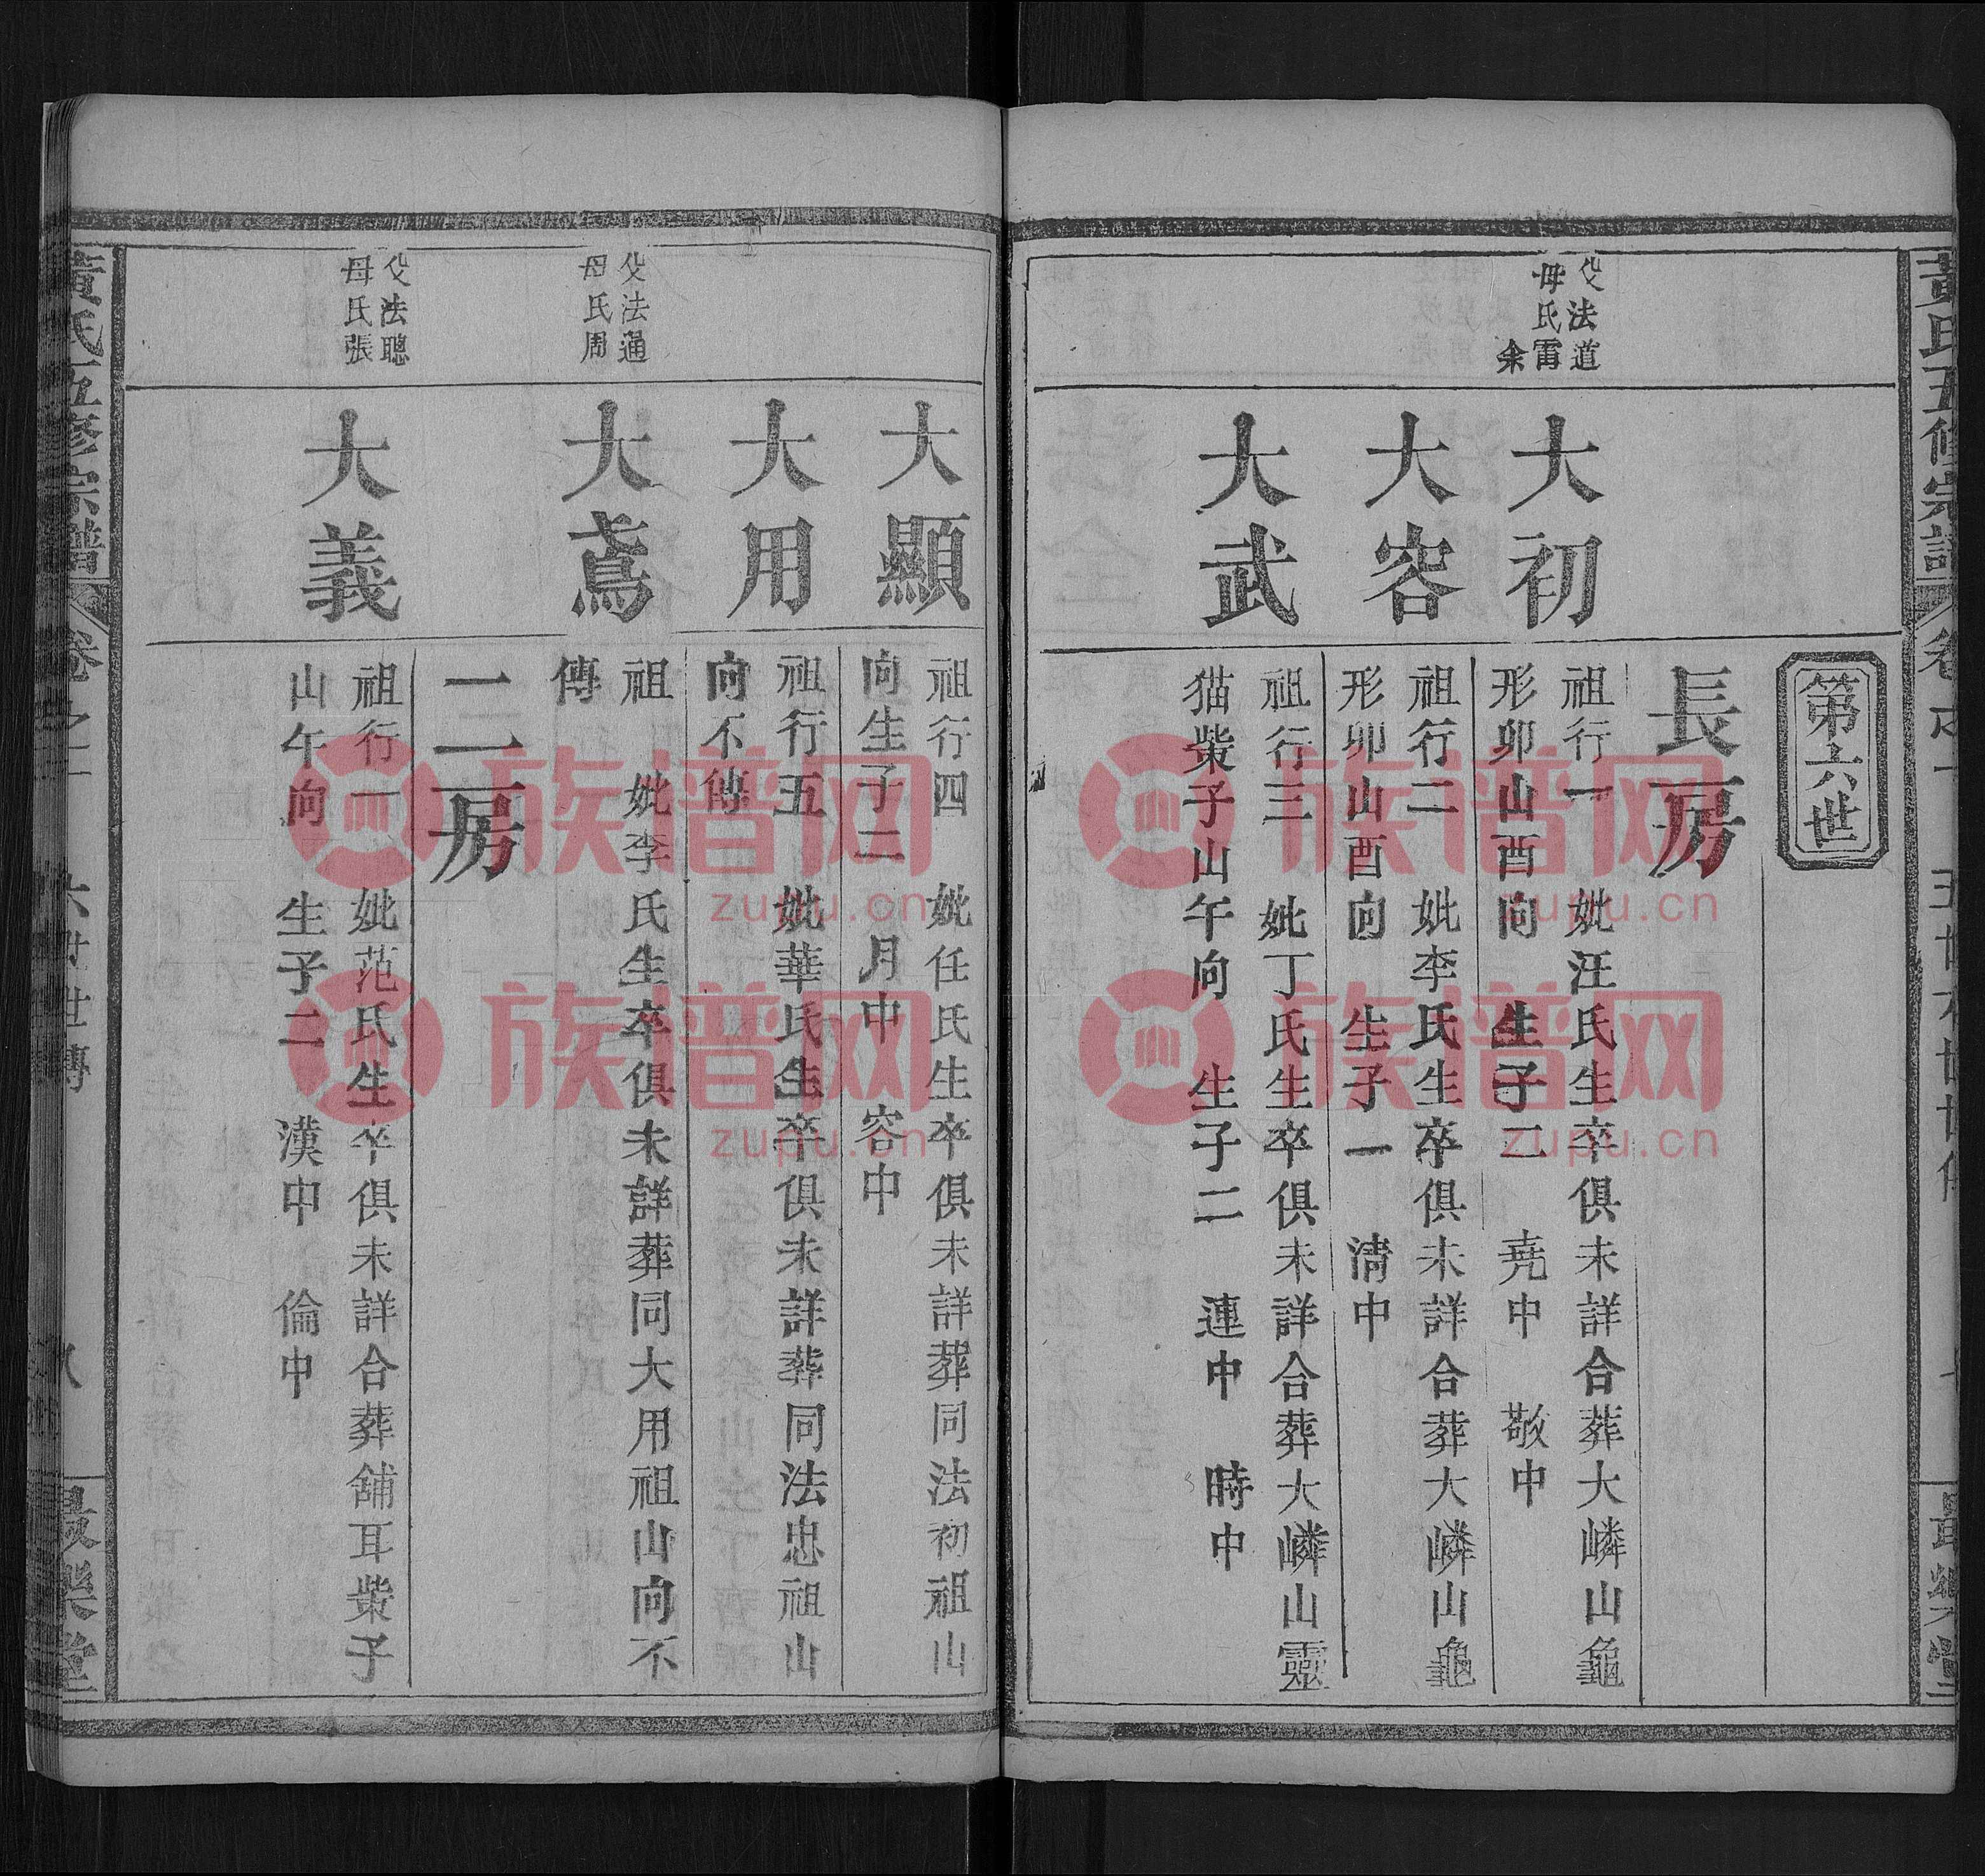 黃氏五修宗譜
最樂堂
第六世
長房
父法道
母氏雷
余
大初
祖行一 妣汪氏生卒俱未詳合葬大嶙山龜
形卯山酉向 生子二 堯中 敬中
大容
祖行二 妣李氏生卒俱未詳合葬大嶙山龜
形卯山酉向 生子一 清中
大武
祖行三 妣丁氏生卒俱未詳合葬大嶙山靈
猫柴子山午向 生子二 連中 時中
大顯
祖行四 妣任氏生卒俱未詳葬同法初祖山
向生子二 月中 容中
大用
祖行五 妣華氏生卒俱未詳葬同法忠祖山
向不傳
父法通
母氏周
大鳶
祖 妣李氏生卒俱未詳葬同大用祖山向不
傳
二房
父法聰
母氏張
大義
祖行一 妣范氏生卒俱未詳合葬舖耳柴子
山午向 生子二 漢中 倫中
黃氏五修宗譜
卷之一
六世世傳
八
最樂堂
族谱网
zupu.cn
族谱网
zupu.cn
族谱网
zupu.cn
族谱网
zupu.cn